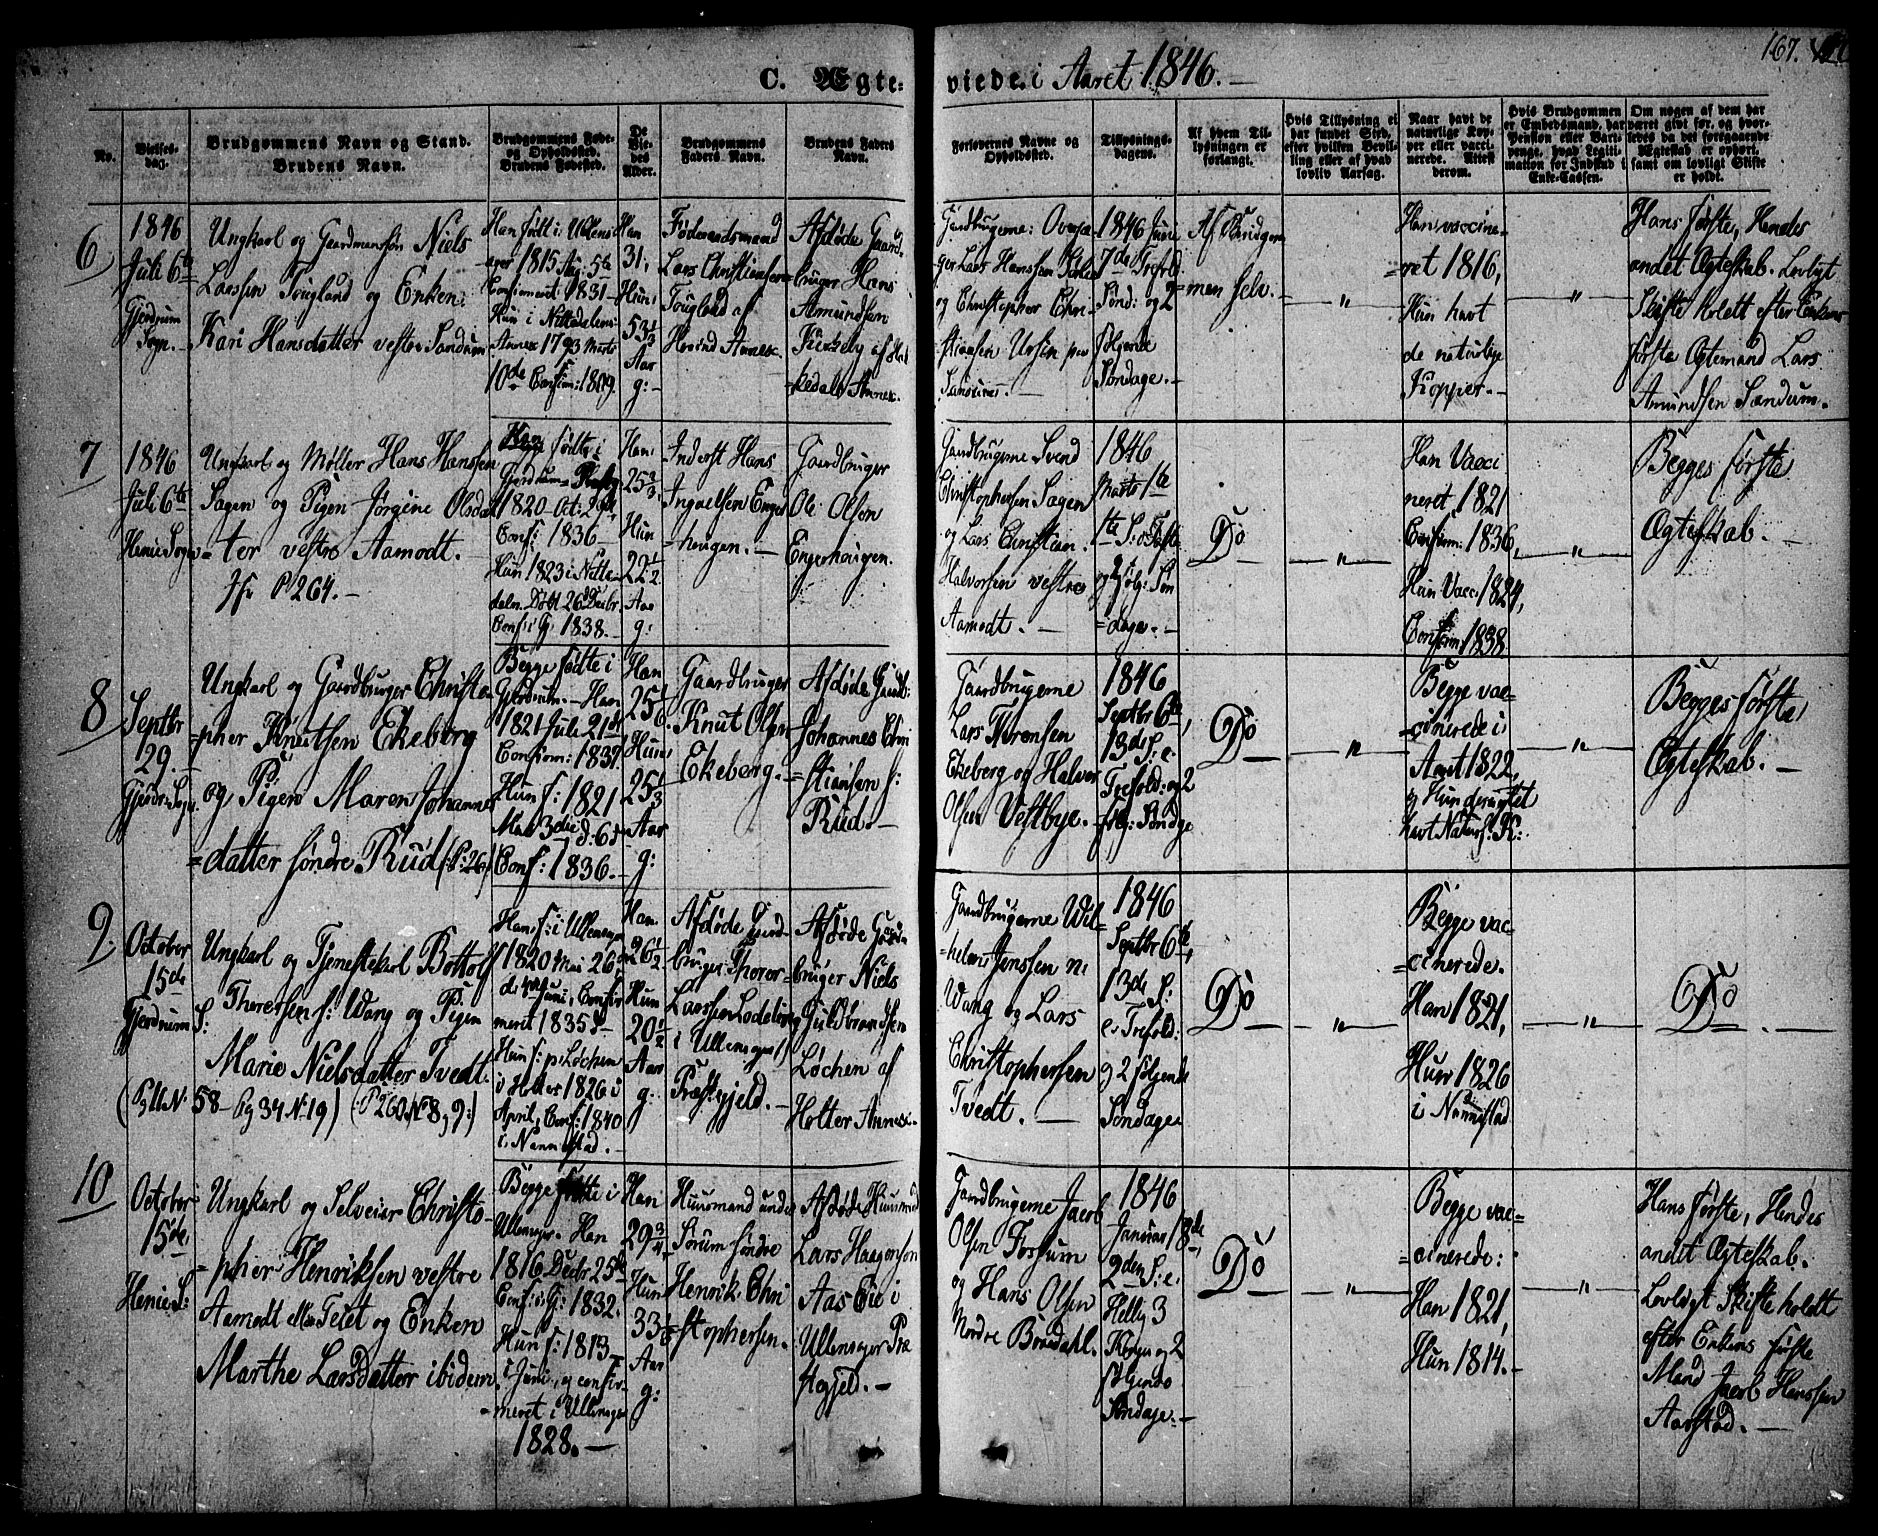 167.
C. Ægte-
viede i Aaret 1846.
No.
Vielses-
dag.
Brudgommens Navn og Stand.
Brudens Navn.
Brudgommens Føde-
og Opholdsted.
Brudens Fødested.
De
Vie-
des
Alder.
Brudgommens
Faders Navn.
Brudens Faders
Navn.
Forlovernes Navne og
Opholdsted.
Tillysnings-
dagene.
Af hvem Til-
lysningen er
forlangt.
Hvis Tillysning ei
har fundet Sted,
efter hvilken Bevil-
ling eller af hvad
lovlig Aarsag.
Naar havt de
naturlige Kop-
per eller vacci-
nerede. Attest
derom.
Hvis Brudgommen
er Embedsmand, har
Pension eller Vart-
penge, hvad Legiti-
mation for Indskud i
Enke-Cassen.
Om nogen af dem har
været givt før, og hvor-
ledes da det foregaaende
Ægteskab er ophørt,
samt om lovligt Skifte
er holdt.
6
1846
Juli 6te
Gjerdrum
Sogn.
Ungkarl og Gaardmandssøn Niels
Larssen Tougland og Enken
Kari Hansdatter vestre Sandum
Han født i Ullens-
ager 1815 Aug: 5te
Confirmeret 1831
Hun i Nittedalens
Annex 1793 Marts
10de Confirm: 1809.
Han
31,
Hun
53 1/3
Aar
g:
Føderaadsmand
Lars Christiansen
Tougland af
Hovind Annex.
Afdøde Gaard-
bruger Hans
Amundsen
af Ha-
kedals Annex.
Gaardbrugerne:
Lars Hanssen
og Christopher Chri-
stiansen
1846 Juni
7de Trefold:
Sønd: og 2
følgende
Søndage.
Af Brudgom-
men selv.
"
Han vaccine-
ret 1816,
Hun havt
de naturlige
Kopper.
"
Hans første, Hendes
andet Ægteskab. Lovligt
Skifte holdt efter Enkens
første Ægtemand Lars
Amundsen Sandum.
7
1846
Juli 6te
Henie Sogn
Ungkarl og Møller Hans Hanssen
Sagen og Pigen Jørgine Olsdat-
ter vestre Aamodt.
Jfr P 264.
født i
Gjerdrum
1820 Oct: 20de,
Conf: 1836
Hun 1823 i Nitte-
dalen. Døbt 26 Decbr.
Conf: i G: 1838.
Han
25 2/3,
Hun
22 1/2
Aar
g:
Inderst Hans
Ingvelsen Enger-
haugen.
Gaardbruger
Ole Olsen
Engerhaugen.
Gaardbrugerne Svend
Christophersen Sagen
og Lars Christian
Halvorsen vestre
Aamodt.
1846
Marts 1te
1te S: i Faste
og 2 følg: Søn-
dage.
Do
"
Han Vacci
neret 1821
Confirm: 1836,
Hun Vacc: 1824,
Confirm: 1838
"
Begges første
Ægteskab.
8
Septbr
29.
Gjerdr: Sogn
Ungkarl og Gaardbruger Christo-
pher Knutsen Ekeberg
og Pigen Maren Johannes-
datter søndre Rud (P: 26)
Begge fødte i
Gjerdrum. Han
1821 Juli 21de
Confirm: 1837.
Hun f: 1821
Mai 3die d: 6t
Conf: 1836.
Han
25 1/6
Hun
25 1/3
Aar
g:
Gaardbruger
Knut Olsen
Ekeberg.
Afdøde Gaardb:
Johannes Chri-
stiansen s:
Rud.
Gaardbrugerne
Lars
Ekeberg og Halvor
Olsen Vestbye.
1846
Septbr 6te,
13de S: e:
Trefold: og 2
følg: Søndge
Do
"
Begge vac-
cinerede i
Aaret 1822,
havt Naturl: K:
"
Begges første
Ægteskab.
9.
October
15de
Gjerdrum S:
Ungkarl og Tjenestekarl Bottolf
Thoresen s: Wang og Pigen
Marie Nielsdatter Tvedt.
58 - Pg 34 N: 19) (P 260 N 8, 9:)
Han f: i Ullensager
1820 Mai 26,
d: 4de Juni, Confir-
meret 1835
Hun f: p: Løchen
i Holter 1826 i
April, Conf: 1840
i Nannestad.
Han
26 1/2
Hun
20 1/2
Aar
g:
Afdøde Gaard-
bruger Thoror
Larssen
i Ullensager
Præstegjeld.
Afdøde Gaard-
bruger Niels
Guldbrandsen
Løchen af
Holter Annex.
Gaardbrugerne Wil-
helm Jenssen n:
Wang og Lars
Christophersen
Tvedt.
1846
Septbr 6te,
13de S:
e: Trefold:
og 2 følgende
Søndage
Do
"
Begge vac-
cinerede.
Han 1821,
Hun 1826
i Nannestad
"
Do
10
October
15de,
Henie S:
Ungkarl og Selveier Christo-
pher Henriksen vestre
Aamodt eller Teiet og Enken
Marthe Larsdatter ibidem
Begge fødte i
Ullensager. Han
1816 Decbr 25de
Conf: i G: 1832.
Hun f: 1813
i Juni, og confir-
meret i Ullensager
1828.
Han
29 3/4
Hun
33 1/3
Aar
g:
Huusmand under
Sørum søndre
Henrik Chri
stophersen.
Afdøde Huusmd
Lars Haagensen
Aas Eie i
Ullensager Præ
stegjeld.
Gaardbrugerne Jacob
Olsen Fossum
og Hans Olsen
Nordre Brædahl.
1846
Januar 18de
2den S: e:
Hellig 3
Konger og 2
følgende
Søndage.
Do
"
Begge vac-
cinerede:
Han 1821,
Hun 1814.
"
Hans første, Hendes
andet Ægteskab.
Lovligt Skifte holdt
efter Enkens første
Mand Jacob Hanssen
Aarstad.